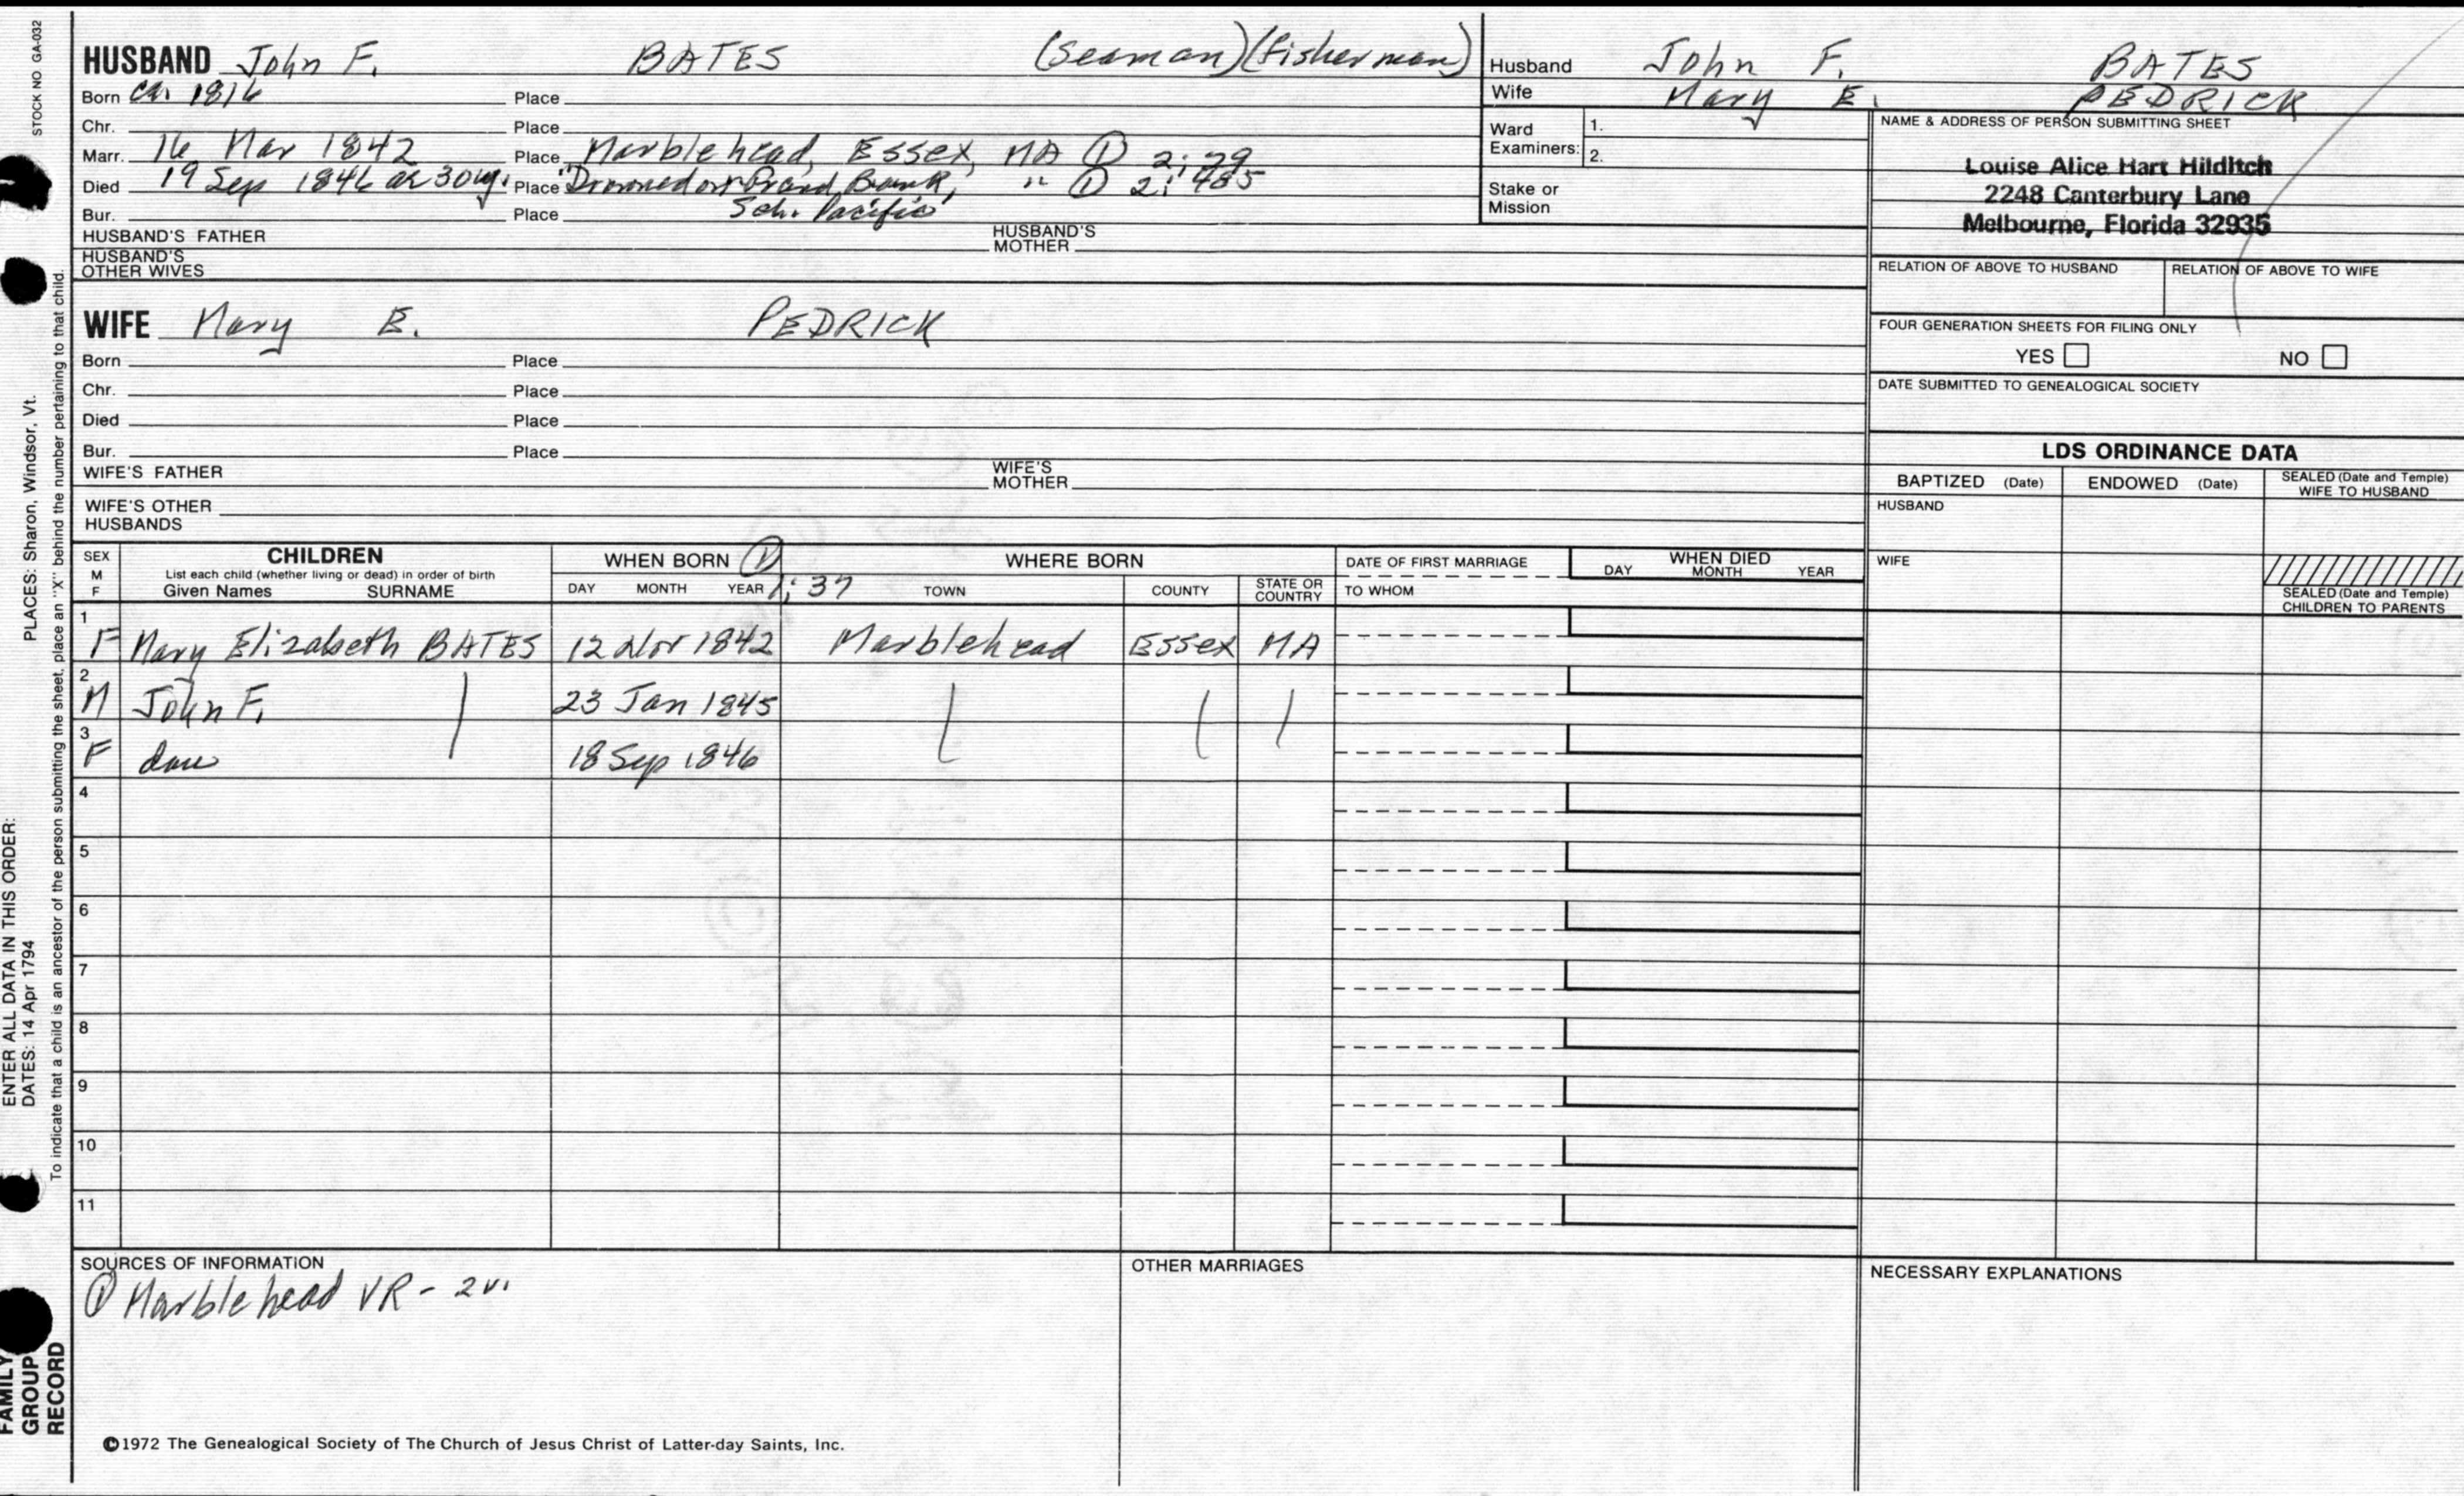 STOCK NO. GA-032
HUSBAND John F. BATES (Seaman)(fisherman)
Born ca. 1816 Place
Chr. Place
Marr. 16 Mar 1842 Place Marblehead, Essex, MA ① 2:29
Died 19 Sep 1846 ae 30 y. Place "Drowned on Grand Bank, " ① 2:485
Bur. Place Sch. Pacific"
HUSBAND'S FATHER HUSBAND'S MOTHER
HUSBAND'S OTHER WIVES
Husband John F. BATES
Wife Mary E. PEDRICK
Ward Examiners: 1.
2.
Stake or Mission
NAME & ADDRESS OF PERSON SUBMITTING SHEET
Louise Alice Hart Hilditch
2248 Canterbury Lane
Melbourne, Florida 32935
RELATION OF ABOVE TO HUSBAND RELATION OF ABOVE TO WIFE
FOUR GENERATION SHEETS FOR FILING ONLY
YES NO
DATE SUBMITTED TO GENEALOGICAL SOCIETY
WIFE Mary E. PEDRICK
Born Place
Chr. Place
Died Place
Bur. Place
WIFE'S FATHER WIFE'S MOTHER
WIFE'S OTHER HUSBANDS
LDS ORDINANCE DATA
BAPTIZED (Date) ENDOWED (Date) SEALED (Date and Temple) WIFE TO HUSBAND
HUSBAND
WIFE
SEALED (Date and Temple) CHILDREN TO PARENTS
SEX M F
CHILDREN
List each child (whether living or dead) in order of birth
Given Names SURNAME
WHEN BORN ① 1:37
DAY MONTH YEAR
WHERE BORN
TOWN COUNTY STATE OR COUNTRY
DATE OF FIRST MARRIAGE
TO WHOM
WHEN DIED
DAY MONTH YEAR
1 F Mary Elizabeth BATES 12 Nov 1842 Marblehead Essex MA
2 M John F. 23 Jan 1845
3 F dau 18 Sep 1846
4
5
6
7
8
9
10
11
SOURCES OF INFORMATION
① Marblehead VR - 2 v.
OTHER MARRIAGES
NECESSARY EXPLANATIONS
©1972 The Genealogical Society of The Church of Jesus Christ of Latter-day Saints, Inc.
FAMILY GROUP RECORD
ENTER ALL DATA IN THIS ORDER:
DATES: 14 Apr 1794 PLACES: Sharon, Windsor, Vt.
To indicate that a child is an ancestor of the person submitting the sheet, place an "X" behind the number pertaining to that child.